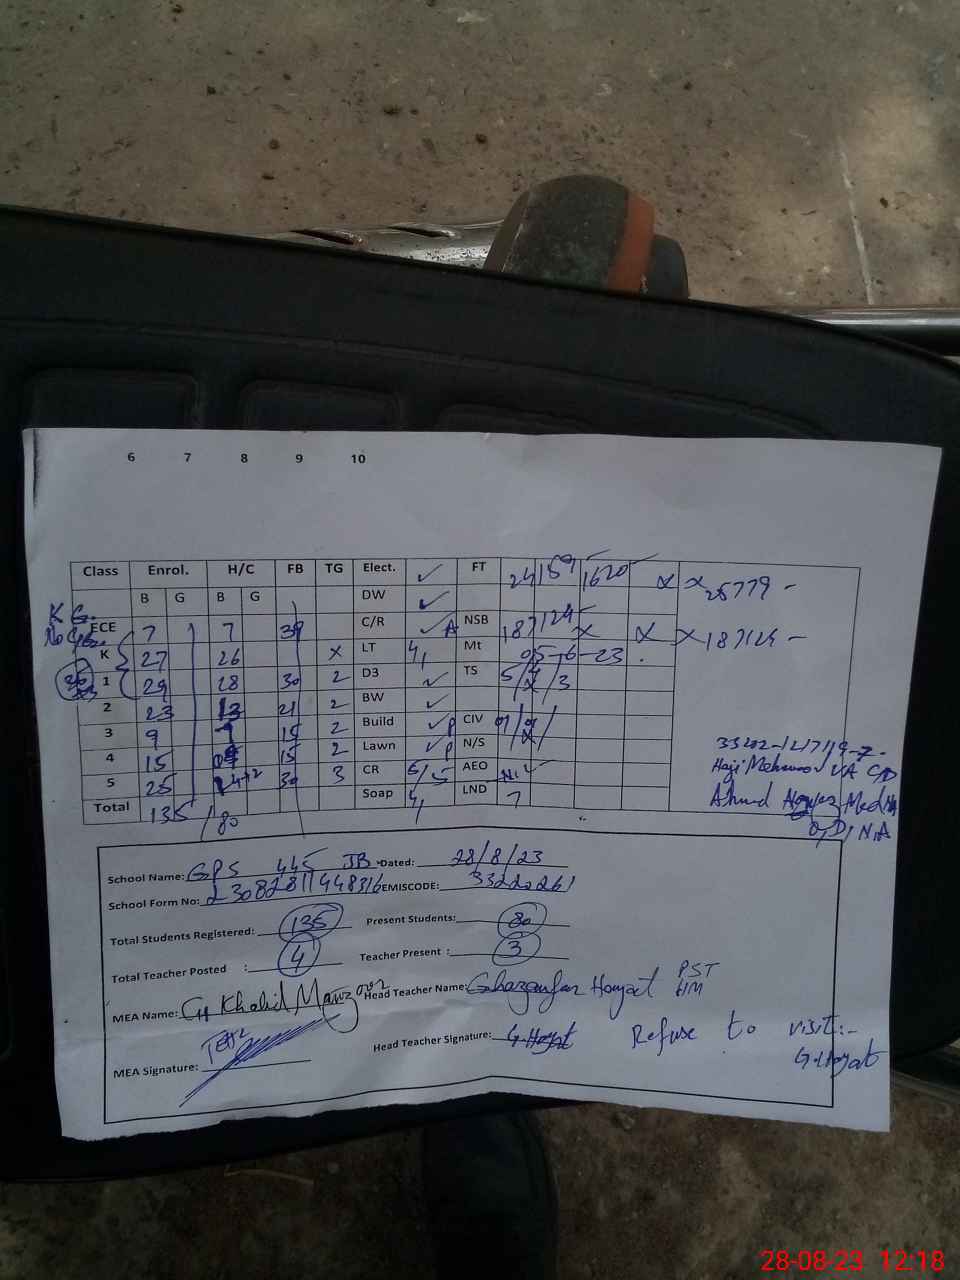 6 7 8 9 10
Class Enrol. H/C FB TG Elect. ✓ FT 24 1620 x x 25779 -
B G B G DW ✓
K G.
ECE 7 7 30 C/R ✓ A NSB 187124 x x x 187124 -
K 27 26 x LT Mt 05-6-23.
1 29 28 30 2 D3 ✓ TS 5/ /3
2 23 13 21 2 BW ✓
3 9 15 2 Build ✓ P CIV
4 15 15 2 Lawn ✓ P N/S
5 25 30 3 CR 6/5 AEO Nil
Total 135 / 80 Soap LND 7
Haji
Ahmd
School Name: GPS 445 JB Dated: 28/8/23
School Form No: 23082811448316 EMISCODE: 33220261
Total Students Registered: 135 Present Students: 80
Total Teacher Posted : 4 Teacher Present : 3
MEA Name: CH Khalid Manzoor Head Teacher Name: Ghazanfar Hayat PST
HM
MEA Signature: Head Teacher Signature: G.Hayat Refuse to visit:-
G.Hayat
28-08-23 12:18